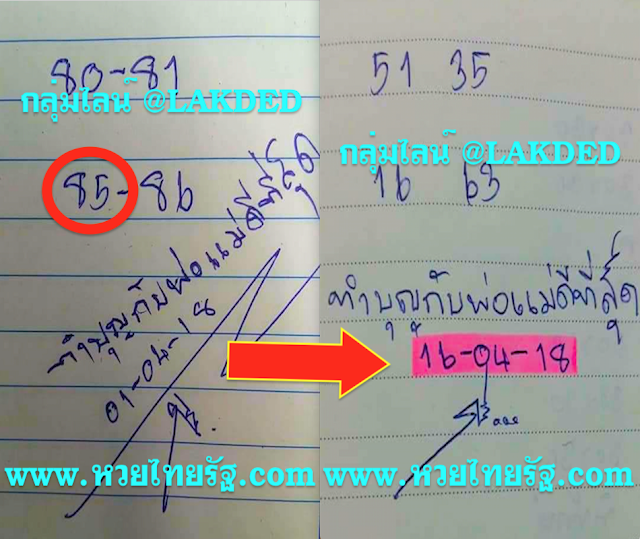 80-81
กลุ่มไลน์ @LAKDED
85-86
ทำบุญกับพ่อแม่ดีที่สุด
01-04-18
www.หวยไทยรัฐ.com
51 35
กลุ่มไลน์ @LAKDED
16 63
ทำบุญกับพ่อแม่ดีที่สุด
16-04-18
www.หวยไทยรัฐ.com